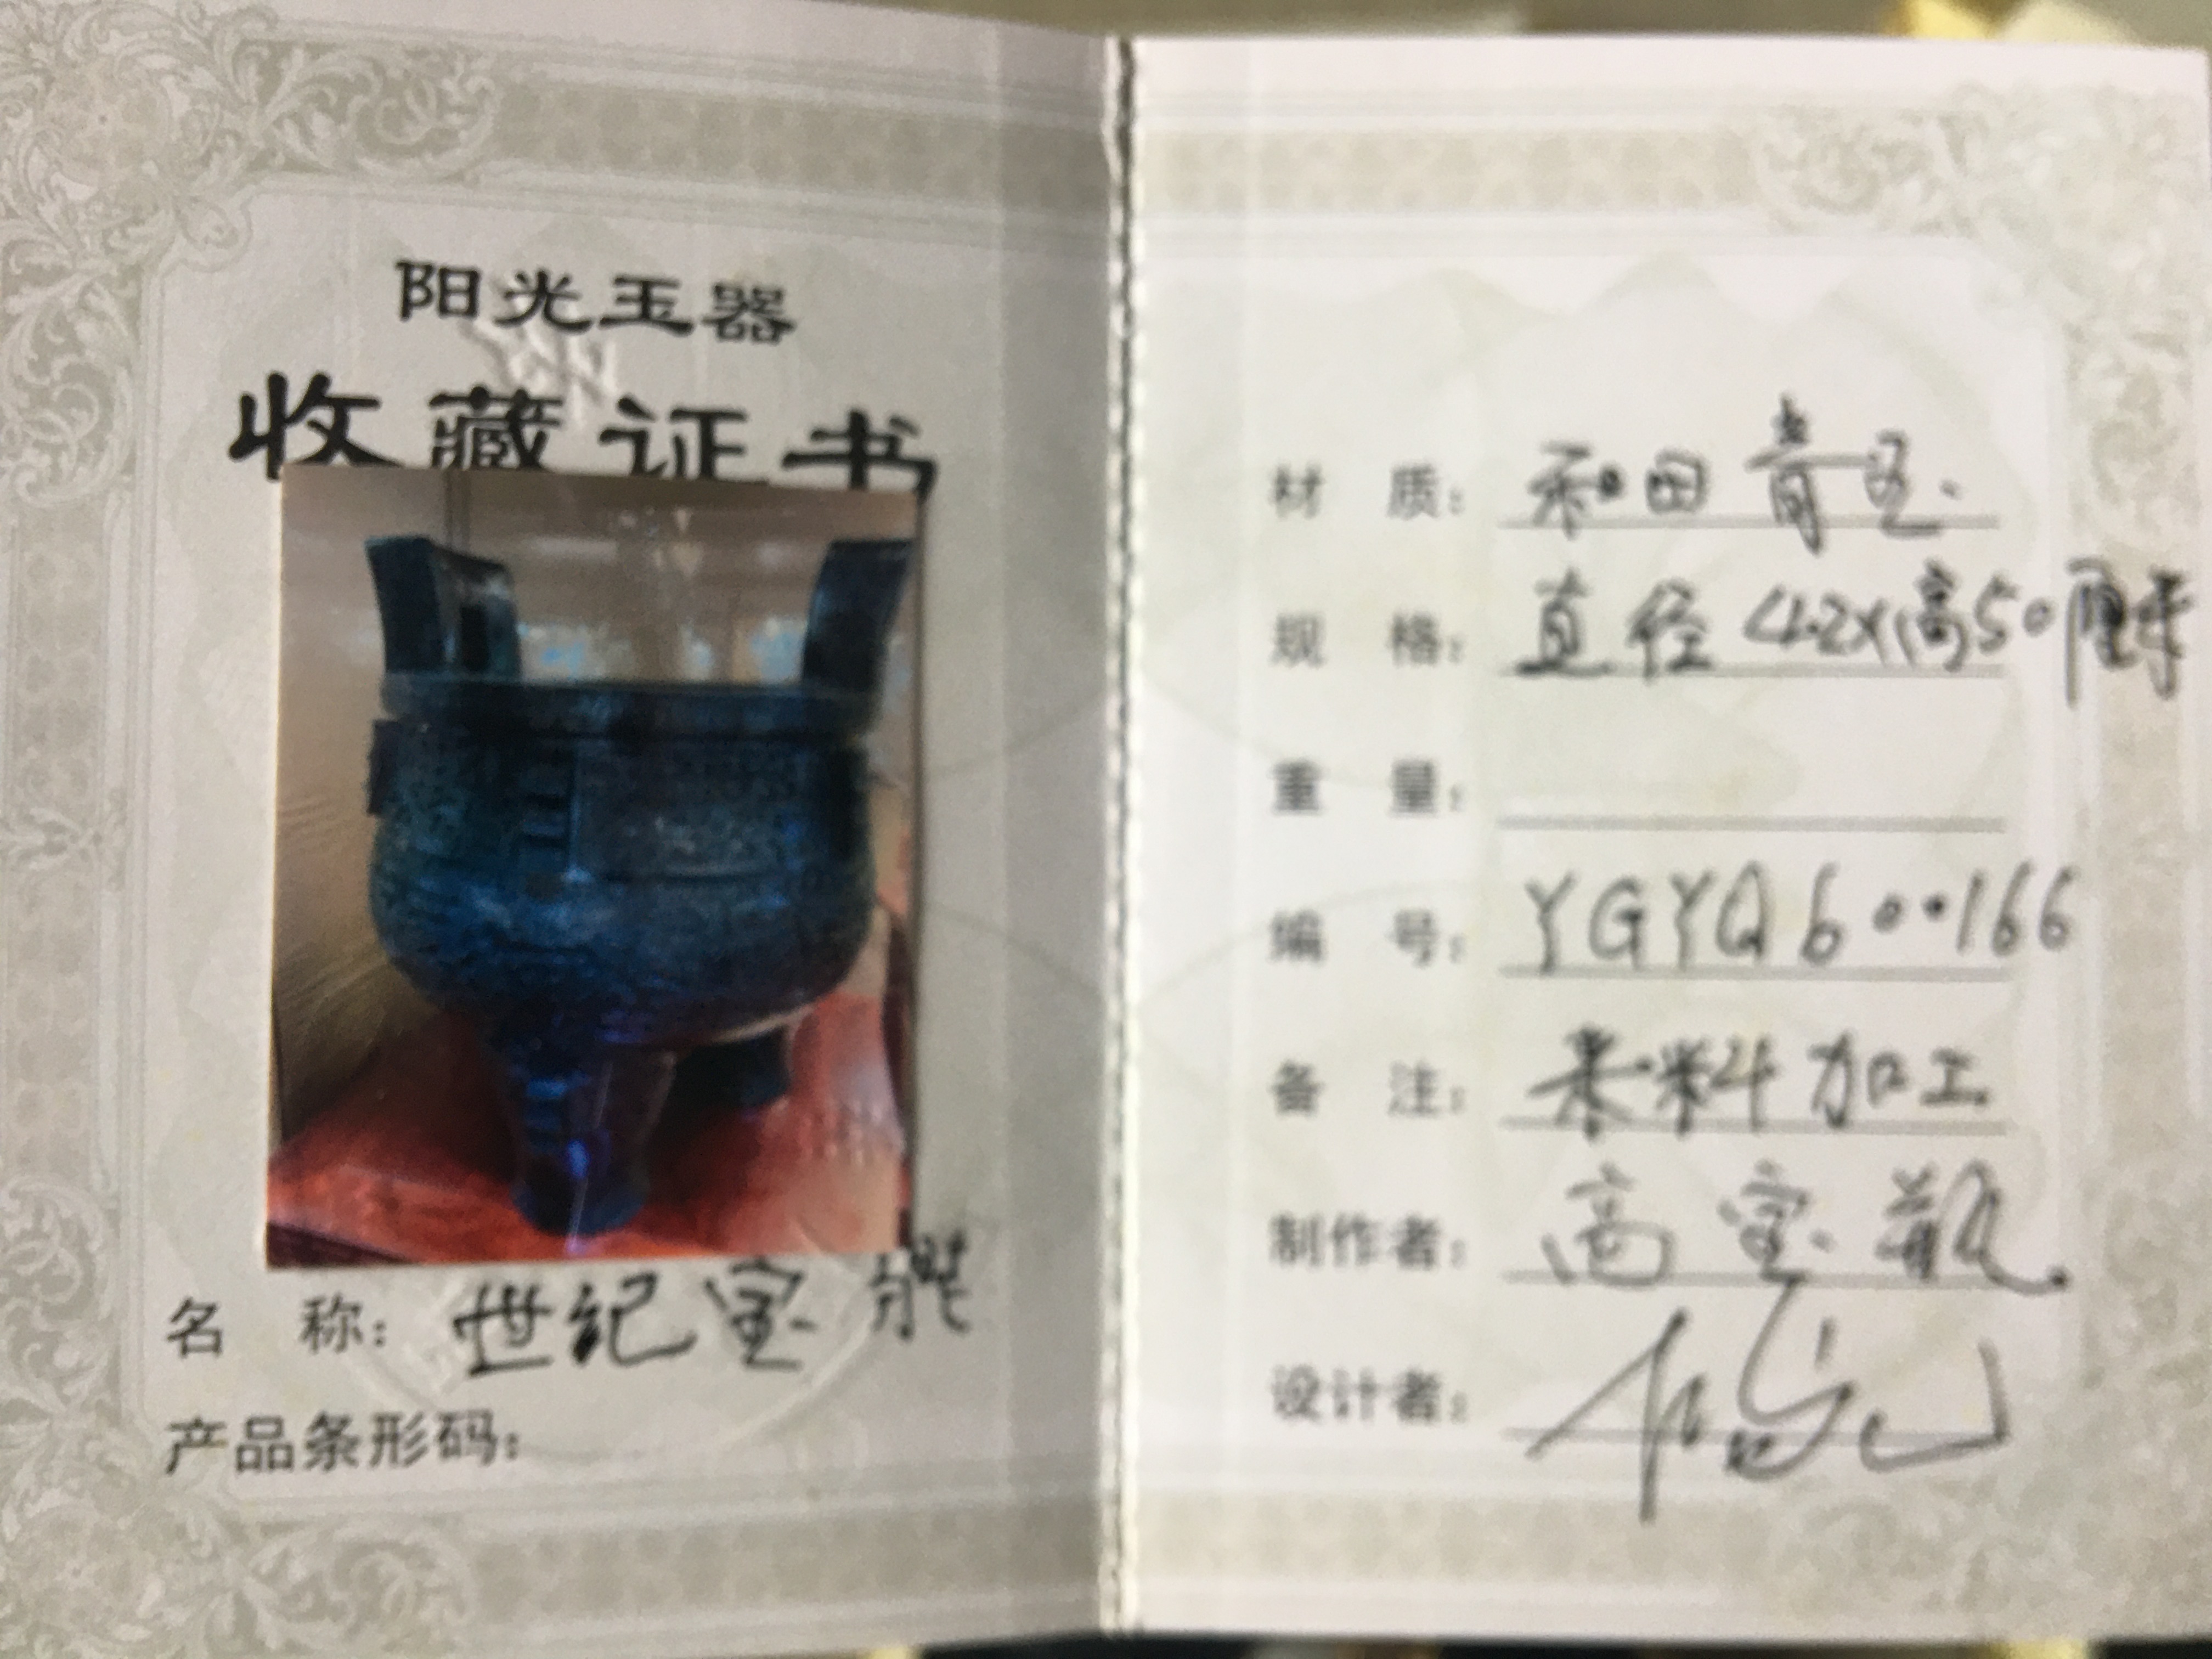 阳光玉器
收藏证书
名 称: 世纪宝
产品条形码:
材 质: 和田青玉.
规 格: 直径42x高50厘米
重 量:
编 号: YGYQ600166
备 注: 来料加工
制作者: 高宝
设计者: